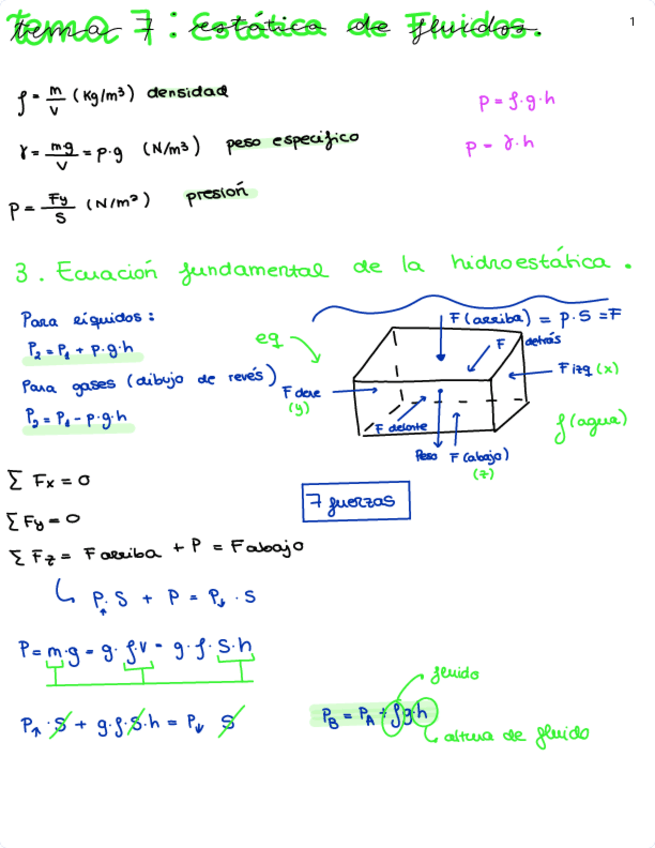 tema 7: estática de fluidos.
1
ρ = m/V (Kg/m³) densidad
P = ρ·g·h
γ = mg/V = ρ·g (N/m³) peso especifico
P = γ·h
P = Fy/S (N/m²) presión
3. Ecuación fundamental de la hidroestática.
Para líquidos:
P₂ = P₁ + ρ·g·h
Para gases (dibujo de revés)
P₂ = P₁ - ρ·g·h
eq
F (arriba) = P·S = F
F detrás
F izq (x)
F dere
(y)
F delante
ρ (agua)
Peso F (abajo)
(z)
7 fuerzas
Σ Fx = 0
Σ Fy = 0
Σ Fz = F arriba + P = F abajo
↳ P↑·S + P = P↓·S
P = m·g = g·ρ·V = g·ρ·S·h
P↑·S + g·ρ·S·h = P↓ S
fluido
P_B = P_A + ρgh
altura de fluido